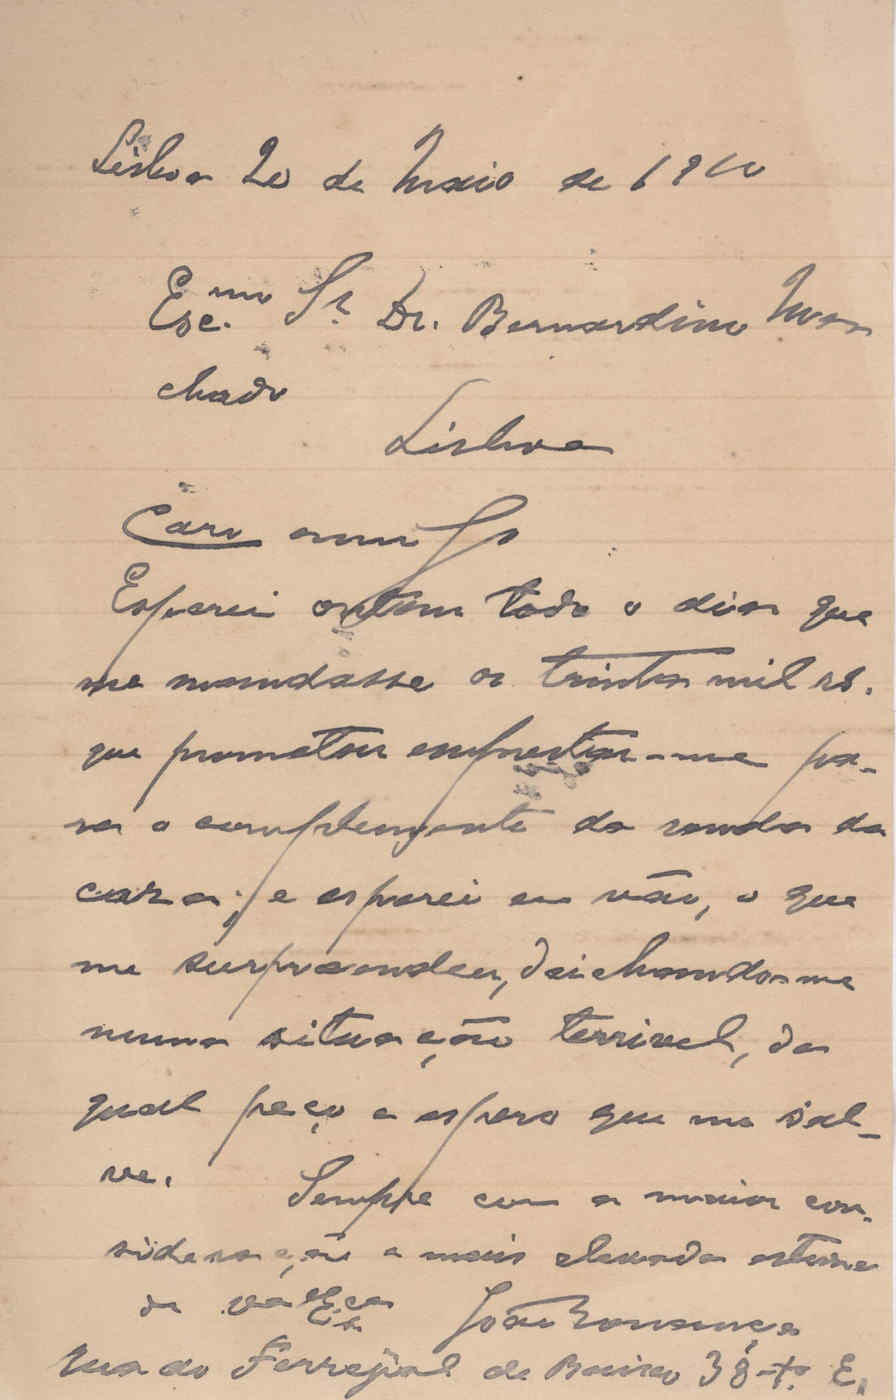 Lisboa 20 de Maio de 1910
Exc.mo Sr. Dr. Bernardino Ma
chado
Lisboa
Caro amigo
Esperei ontem todo o dia que
me mandasse os trinta mil rs.
que prometeu emprestar-me pa-
ra o complemento da renda da
caza; e esperei em vão, o que
me surpreendeu, deichando-me
numa situação terrivel, da
qual peço e espero que me sal-
ve.
Sempre com a maior con-
sideração e mais elevada estima
de va Exca
João
Rua do Ferregial de Baixo 38-